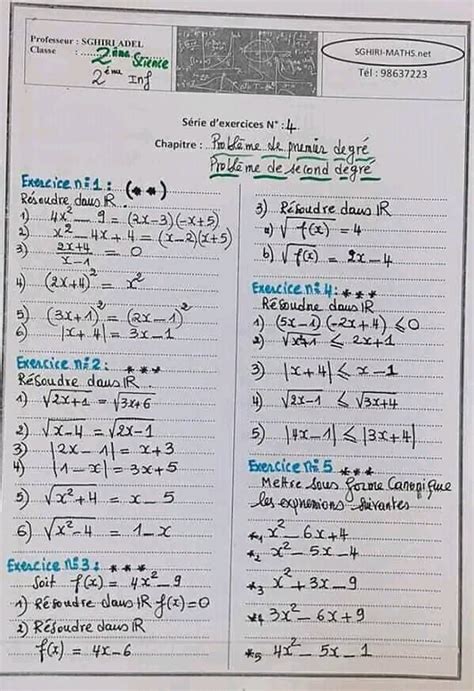 Professeur : SGHIRI ADEL
Classe : 2ème Science
2ème Inf
SGHIRI-MATHS.net
Tél : 98637223
Série d'exercices N° : 4
Chapitre : Problème de premier degré
Problème de second degré
Exercice n°1 : (**)
Résoudre dans IR
1) 4x² - 9 = (2x-3)(-x+5)
2) x² - 4x + 4 = (x-2)(x+5)
3) (2x+4)/(x-1) = 0
4) (2x+4)² = x²
5) (3x+1)² = (2x-1)²
6) |x+4| = 3x-1
Exercice n°2 : ***
Résoudre dans IR.
1) √(2x+1) = √(3x+6)
2) √(x-4) = √(2x-1)
3) |2x-1| = x+3
4) |1-x| = 3x+5
5) √(x²+4) = x-5
6) √(x²-4) = 1-x
Exercice n°3 : ***
Soit f(x) = 4x²-9
1) Résoudre dans IR f(x)=0
2) Résoudre dans IR
f(x) = 4x-6
3) Résoudre dans IR
a) √f(x) = 4
b) √f(x) = 2x-4
Exercice n°4 : ***
Résoudre dans IR
1) (5x-1)(-2x+4) ≤ 0
2) √(x+1) ≤ 2x+1
3) |x+4| ≤ x-1
4) √(2x-1) ≤ √(3x+4)
5) |4x-1| ≤ |3x+4|
Exercice n°5 ***
Mettre sous forme Canonique
les expressions suivantes
*1 x²-6x+4
*2 x²-5x-4
*3 x²+3x-9
*4 3x²-6x+9
*5 4x²-5x-1